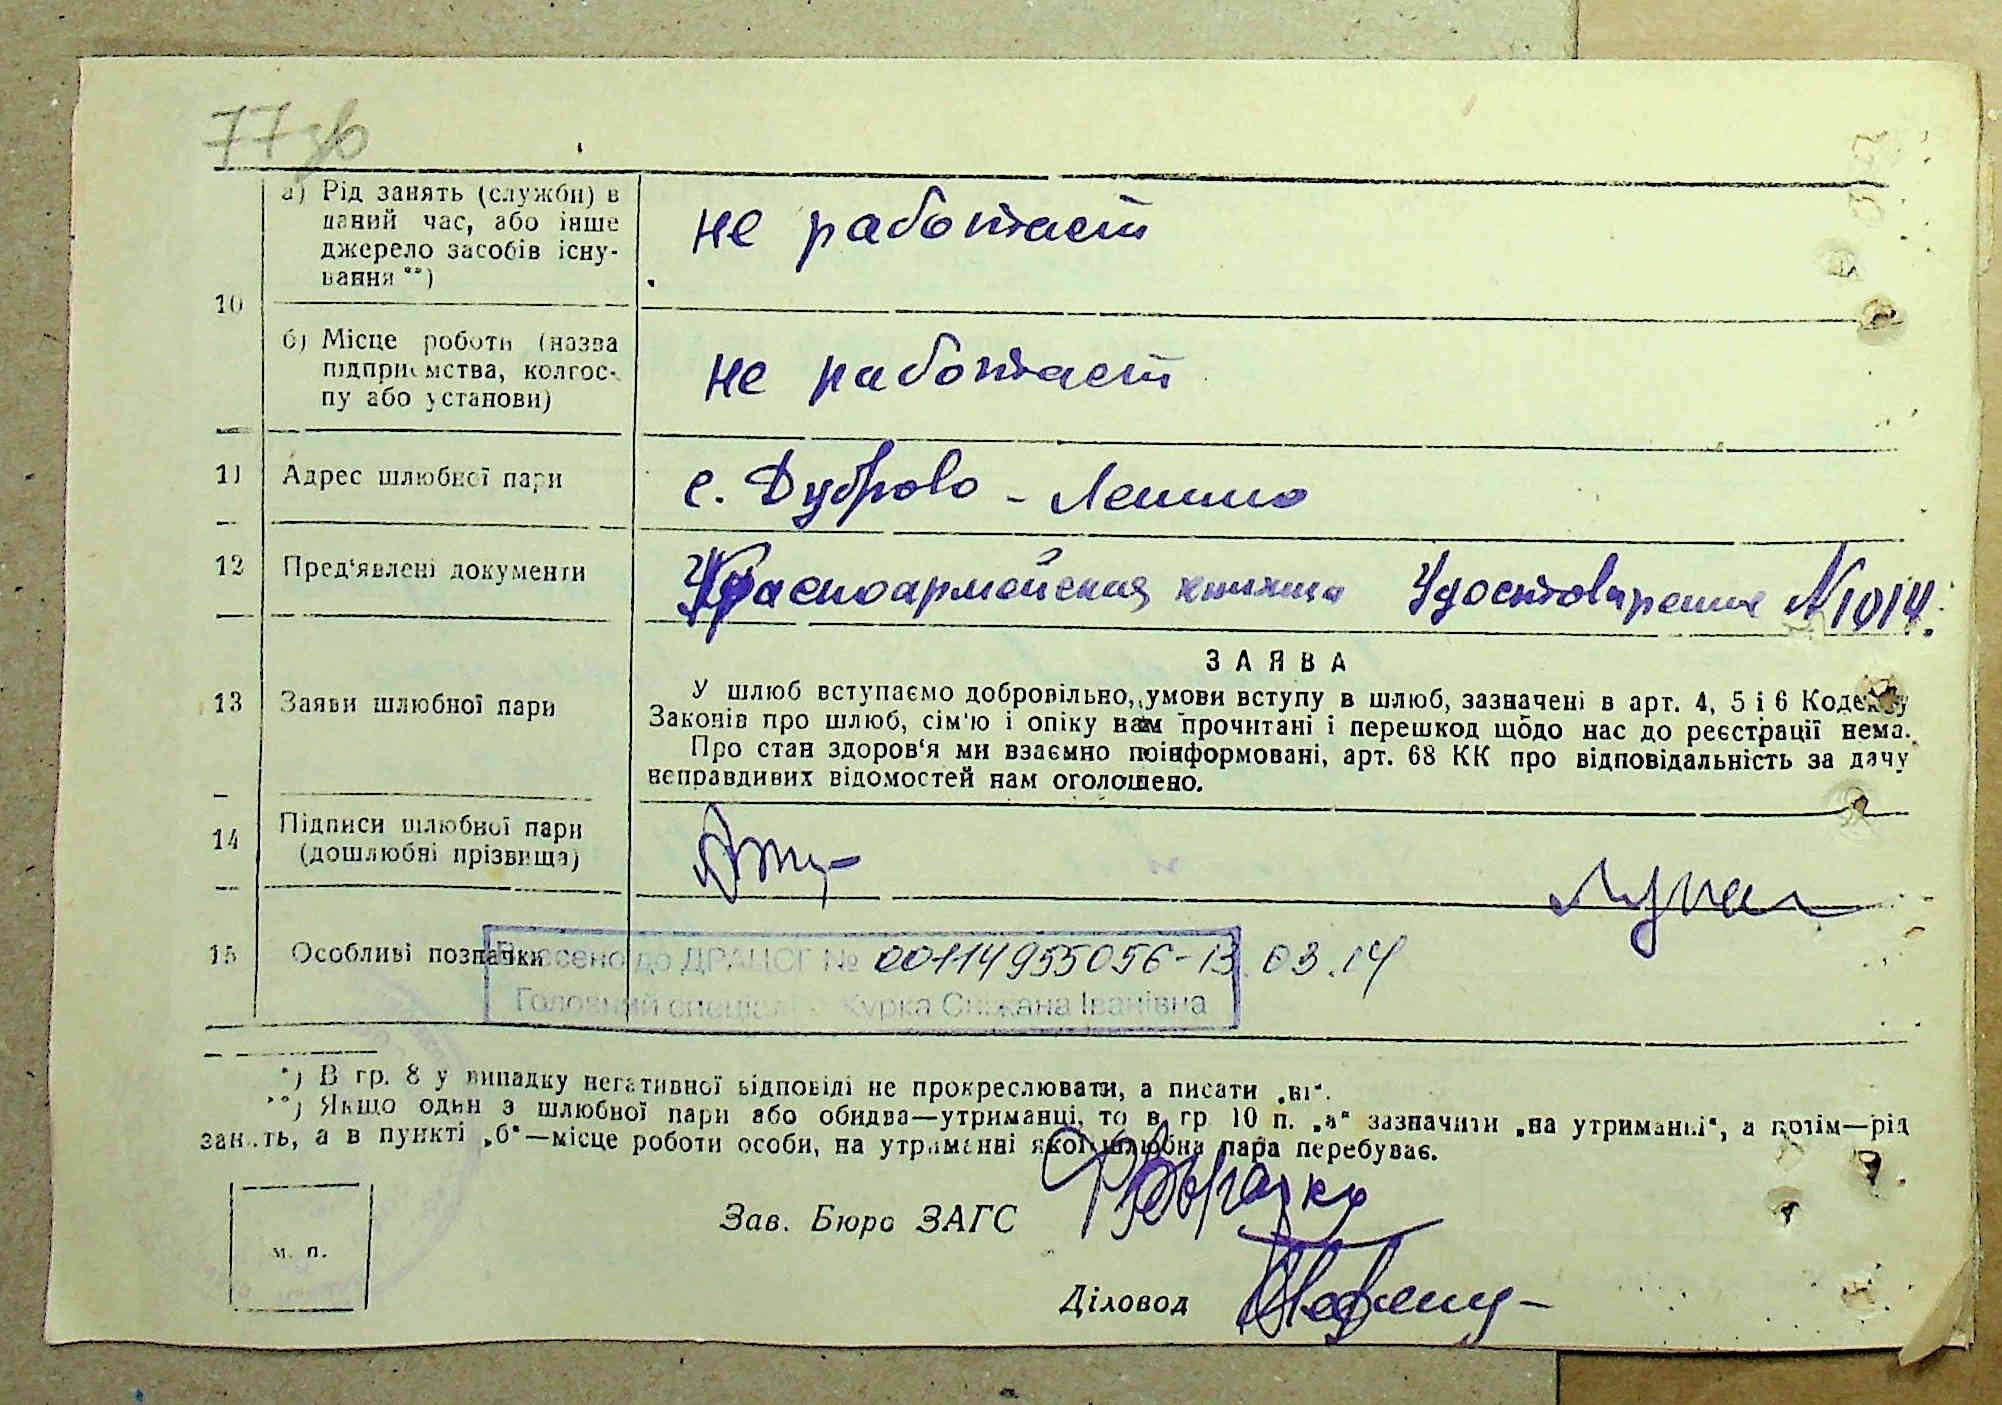 77 зв
10
а) Рід занять (служби) в
даний час, або інше
джерело засобів існу-
вання **)
не работает
б) Місце роботи (назва
підприємства, колгос-
пу або установи)
не работает
11 Адрес шлюбної пари
с. Дуброво - Ленино
12 Пред'явлені документи
Красноармейская книжка Удостоверение №1014.
ЗАЯВА
13 Заяви шлюбної пари
У шлюб вступаємо добровільно, умови вступу в шлюб, зазначені в арт. 4, 5 і 6 Кодексу
Законів про шлюб, сім'ю і опіку нам прочитані і перешкод щодо нас до реєстрації нема.
Про стан здоров'я ми взаємно поінформовані, арт. 68 КК про відповідальність за дачу
неправдивих відомостей нам оголошено.
14 Підписи шлюбної пари
(дошлюбні прізвища)
15 Особливі позначки
Внесено до ДРАЦСГ № 00114955056-13.03.14
Головний спеціаліст Курка Сніжана Іванівна
*) В гр. 8 у випадку негативної відповіді не прокреслювати, а писати „ні“.
**) Якщо один з шлюбної пари або обидва—утриманці, то в гр 10 п. „а“ зазначити „на утриманні“, а потім—рід
занять, а в пункті „б“—місце роботи особи, на утриманні якої шлюбна пара перебуває.
Зав. Бюро ЗАГС
м. п.
Діловод